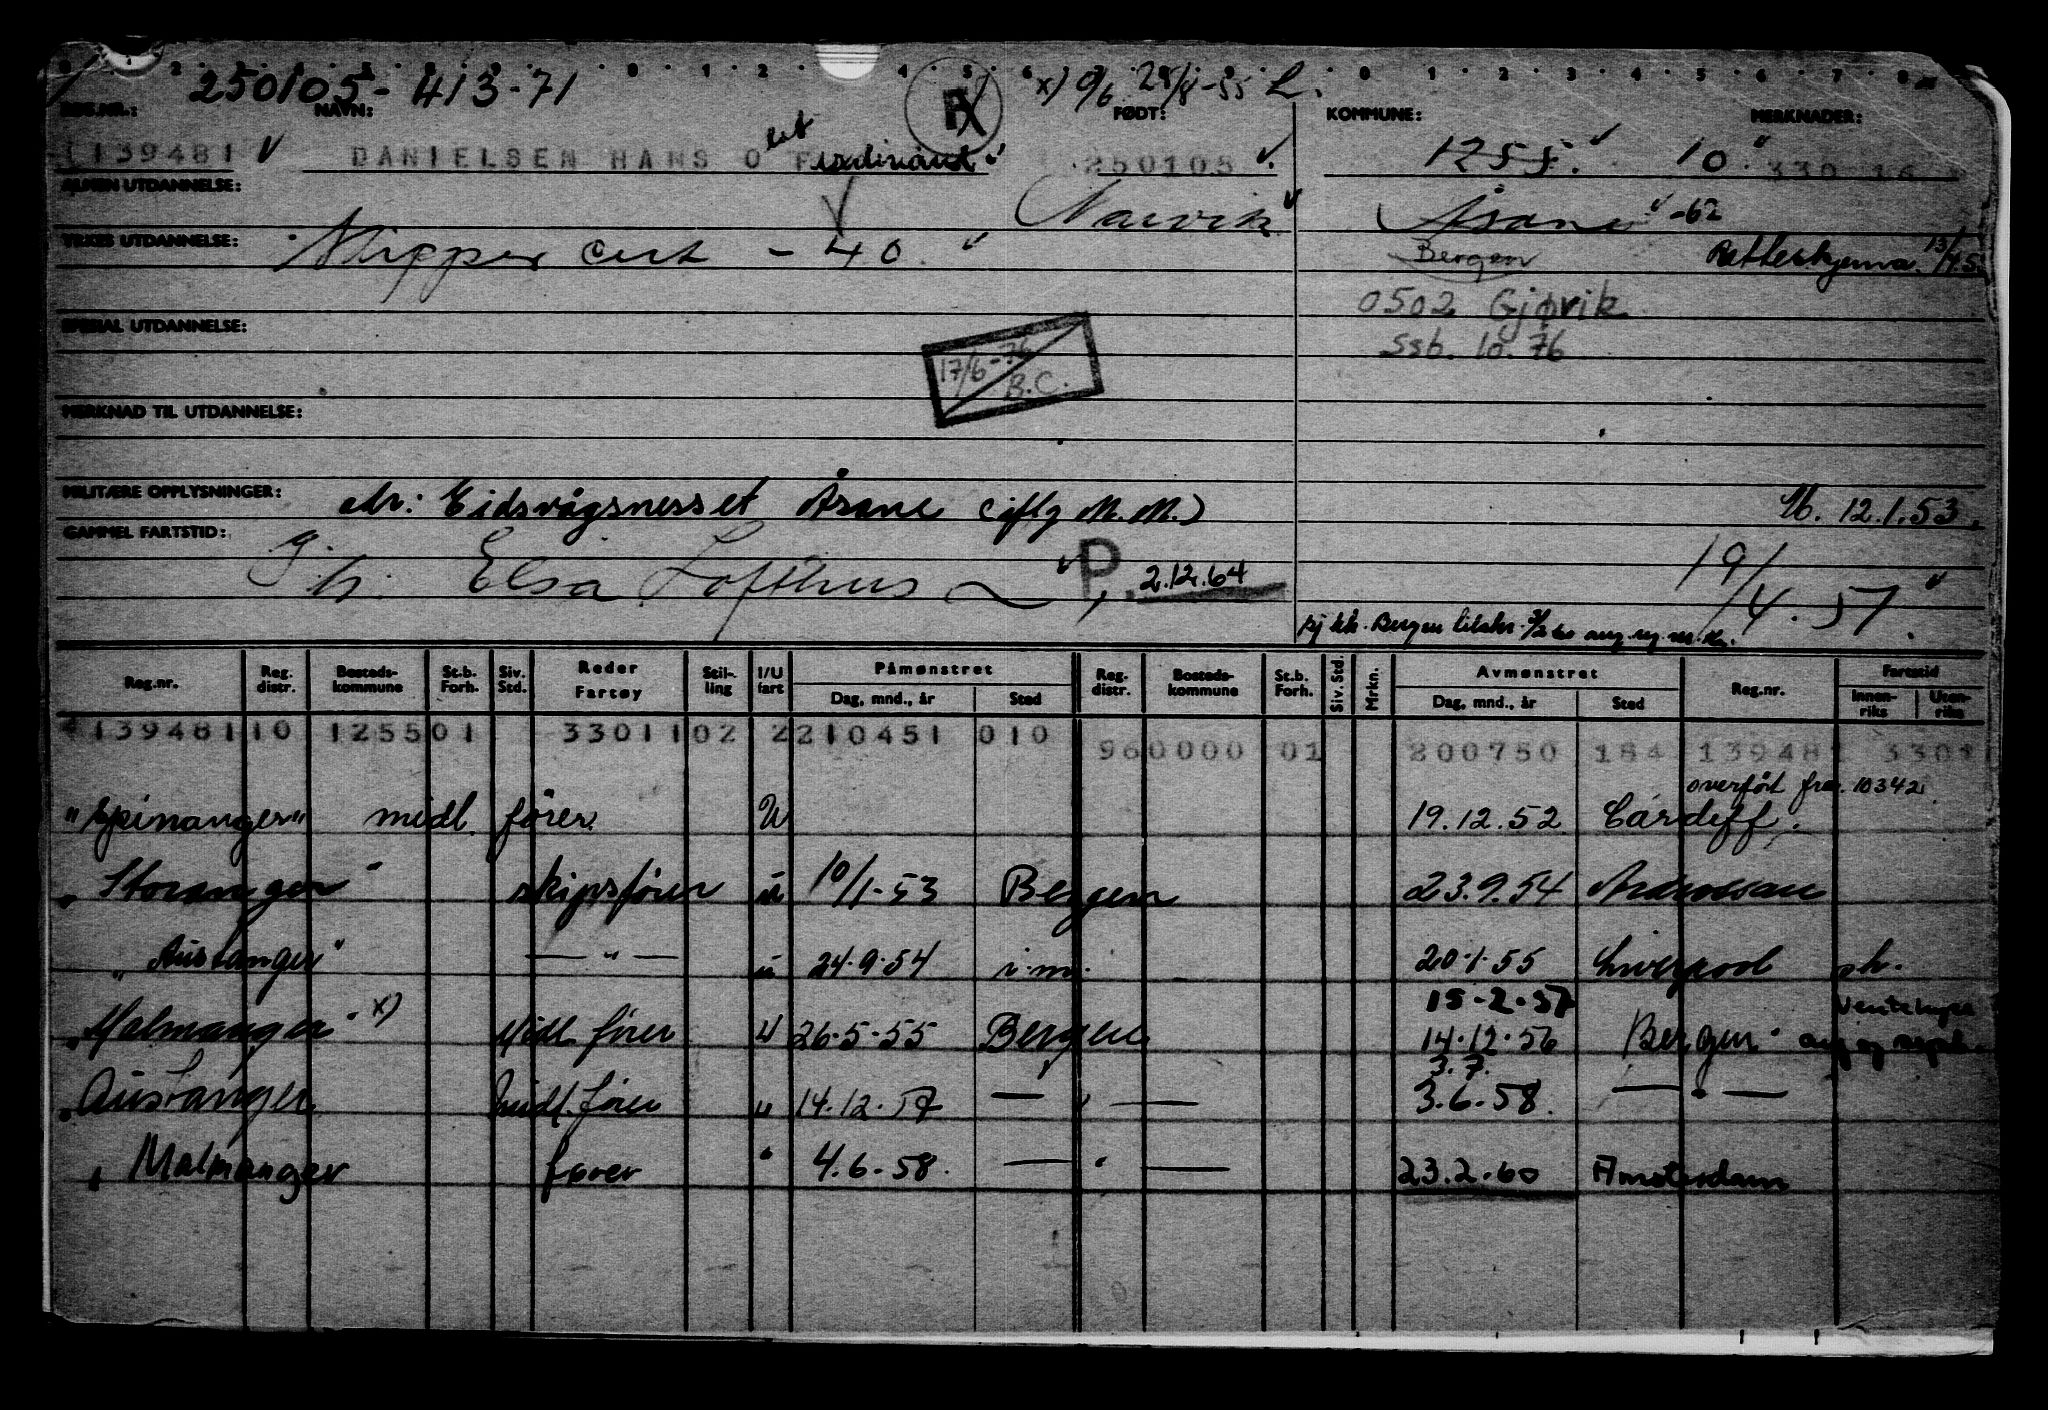 250105-413-71 x) 9/6 28/8-55 L.
REG.NR.: NAVN: FØDT: KOMMUNE: MERKNADER:
139481 DANIELSEN HANS O F 250105 1255. 10 330 16
ALMEN UTDANNELSE: Narvik Åsane -62
YRKES UTDANNELSE: Skipper cert - 40 Bergen Retteskjema
0502 Gjøvik
SPESIAL UTDANNELSE: Ssb. 10.76
17/6-76 B.C.
MERKNAD TIL UTDANNELSE:
MILITÆRE OPPLYSNINGER: adr: Eidsvågsnesset Åsane (iflg M.M.) 12.1.53.
GAMMEL FARTSTID: 19/
g. h. Elsa Lofthus P. 2.12.64 /4.57.
Reg.nr. Reg. distr. Bosteds-kommune St.b. Forh. Siv. Std. Reder Fartøy Stil-ling I/U fart Påmønstret Dag, mnd., år Sted Reg. distr. Bosteds-kommune St.b. Forh. Siv. Std. Mrkn. Avmønstret Dag, mnd., år Sted Reg.nr. Fartstid Innen-riks Uten-riks
139481 10 1255 01 33011 02 2 210451 010 960000 01 200750 184 139481 3301
overført fra 10342
"Spinanger" midl. fører U 19.12.52 Cardiff.
"Storanger" skipsfører u 10/1-53 Bergen 23.9.54 Ardrossan
"Austanger" — " — u 24.9.54 i.m. 20.1.55 Liverpool sk.
15-2-57
"Malmanger" x) Midl. fører U 26-5-55 Bergen 14.12.56 Bergen
3.7.
"Austanger midl. fører " 14.12.57 — " — 3.6.58. — " —
" Malmanger fører " 4.6-58. — " — 23.2.60 Amsterdam